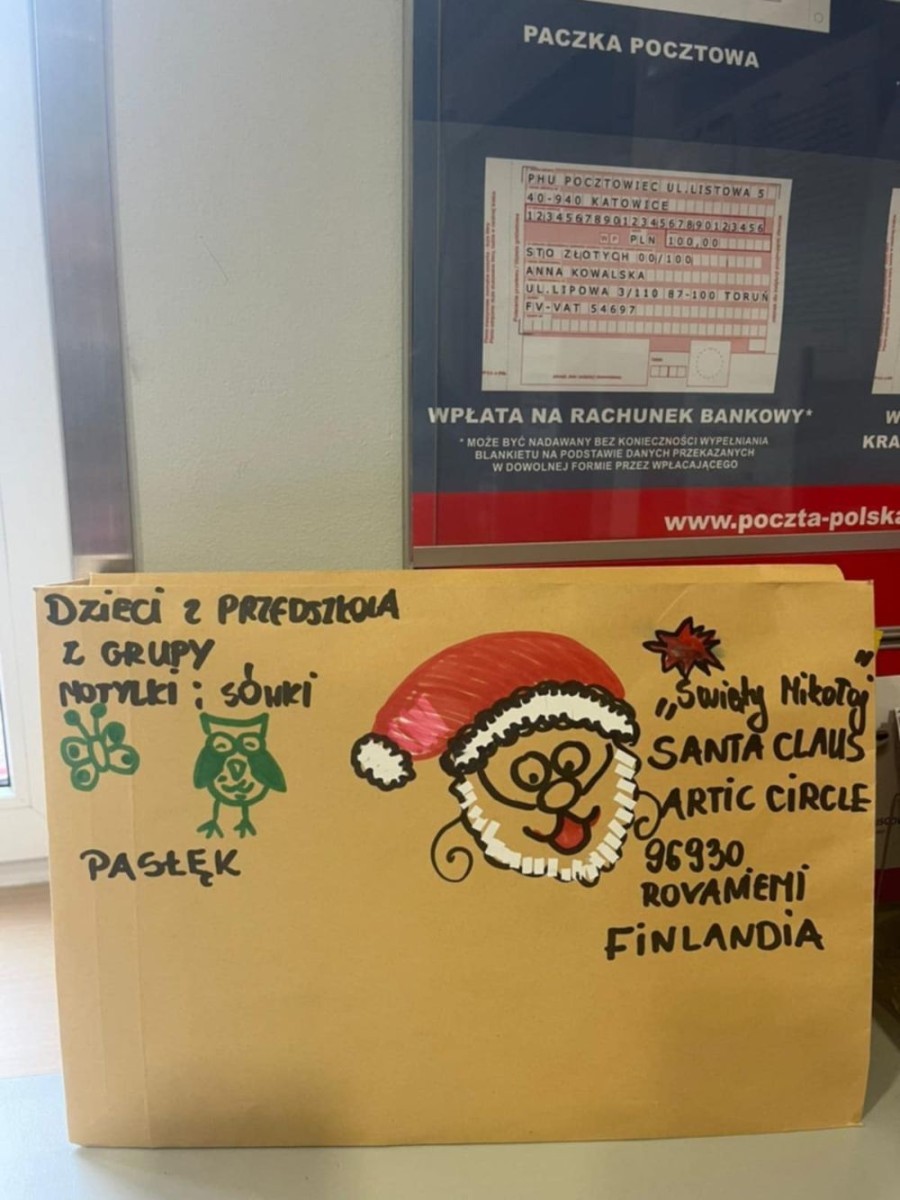 PACZKA POCZTOWA
PHU POCZTOWIEC UL.LISTOWA 5
40-940 KATOWICE
12345678901234567890123456
PLN 100,00
STO ZŁOTYCH 00/100
ANNA KOWALSKA
UL.LIPOWA 3/110 87-100 TORUŃ
FV-VAT 54697
WPŁATA NA RACHUNEK BANKOWY*
* MOŻE BYĆ NADAWANY BEZ KONIECZNOŚCI WYPEŁNIANIA
BLANKIETU NA PODSTAWIE DANYCH PRZEKAZANYCH
W DOWOLNEJ FORMIE PRZEZ WPŁACAJĄCEGO
W
KRA
www.poczta-polska
Dzieci z PRZEDSZKOLA
Z GRUPY
MOTYLKI i SÓWKI
PASŁĘK
„Święty Mikołaj”
SANTA CLAUS
ARTIC CIRCLE
96930
ROVANIEMI
FINLANDIA